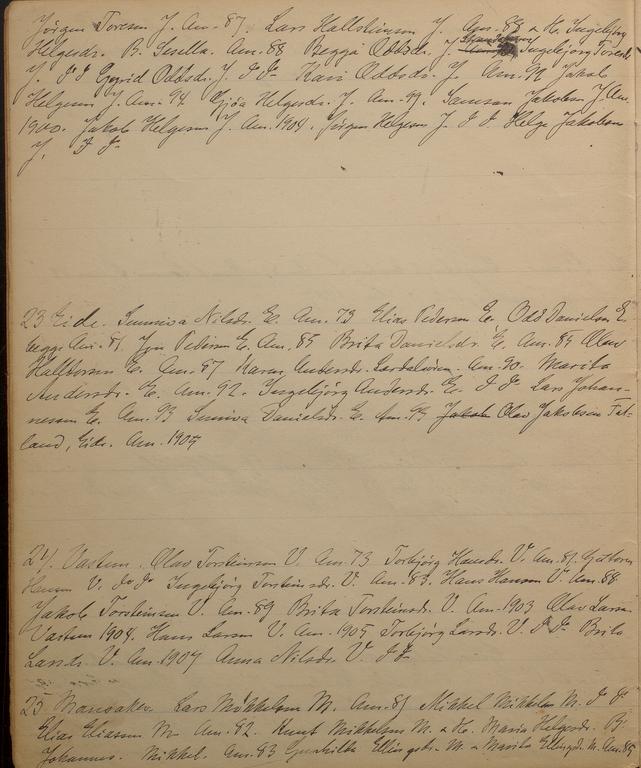 Jørgen Toresen J. Am. 87. Lars Hallsteinson J. Am. 88 & K. Ingebjørg
Helgesdr. B. Sesella. Am. 88 Begga Oddsdr. J. Ingebjørg Toresdr
J. Do Do Gyrid Oddsdr. J. Do Do Kari Oddsdr. J. Am. 92 Jakob
Helgeson J. Am. 94 Gjøa Helgesdr. J. Am. 99. Samson Jakobson J. Am.
1900. Jakob Helgeson J. Am. 1904. Jørgen Helgeson J. Do Do Helge Jakobson
J. Do Do
23 Eide. Sunniva Nilsdr. E. Am. 73 Elias Pederson E. Odd Danielson E.
begge Am. 81. Jon Pederson E. Am. 85 Brita Danielsdr. E. Am. 85 Olav
Hallvorson E. Am. 87 Karen Andersdr. Am. 90. Marita
Andersdr. E. Am. 92. Ingebjørg Andersdr. E. Do Do Lars Johan-
neson E. Am. 93 Sunniva Danielsdr. E. Am. 95 Jakob Olav Jakobson Tat-
land, Eide. Am. 1905
24. Vastun. Olav Torsteinson V. Am. 73 Torbjørg Hansdr. V. Am. 81. Guttorm
Hanson V. Do Do Ingebjørg Torsteinsdr. V. Am. 83. Hans Hanson V. Am. 88
Jakob Torsteinson V. Am. 89 Brita Torsteinsdr. V. Am. 1903 Olav Larson
Vastun 1904. Hans Larson V. Am. 1905 Torbjørg Larsdr. V. Do Do Brita
Larsdr. V. Am. 1907 Anna Nilsdr. V. Do Do
25 Mansaker. Lars Mikkelson M. Am. 81 Mikkel Mikkelson M. Do Do
Elias Eliason M. Am. 82. Knut Mikkelson M. & Ko. Maria Helgesdr. B.
Johannes. Mikkel. Am. 83 Gunhilda Ellingsdr. M. & Marita Ellingsdr. M. Am. 85